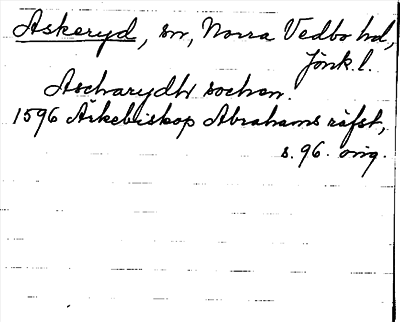 Askeryd, sn, Norra Vedbo hd,
Jönk. l.
Ascharydh sochen.
1596 Ärkebiskop Abrahams räfst,
s. 96. orig.